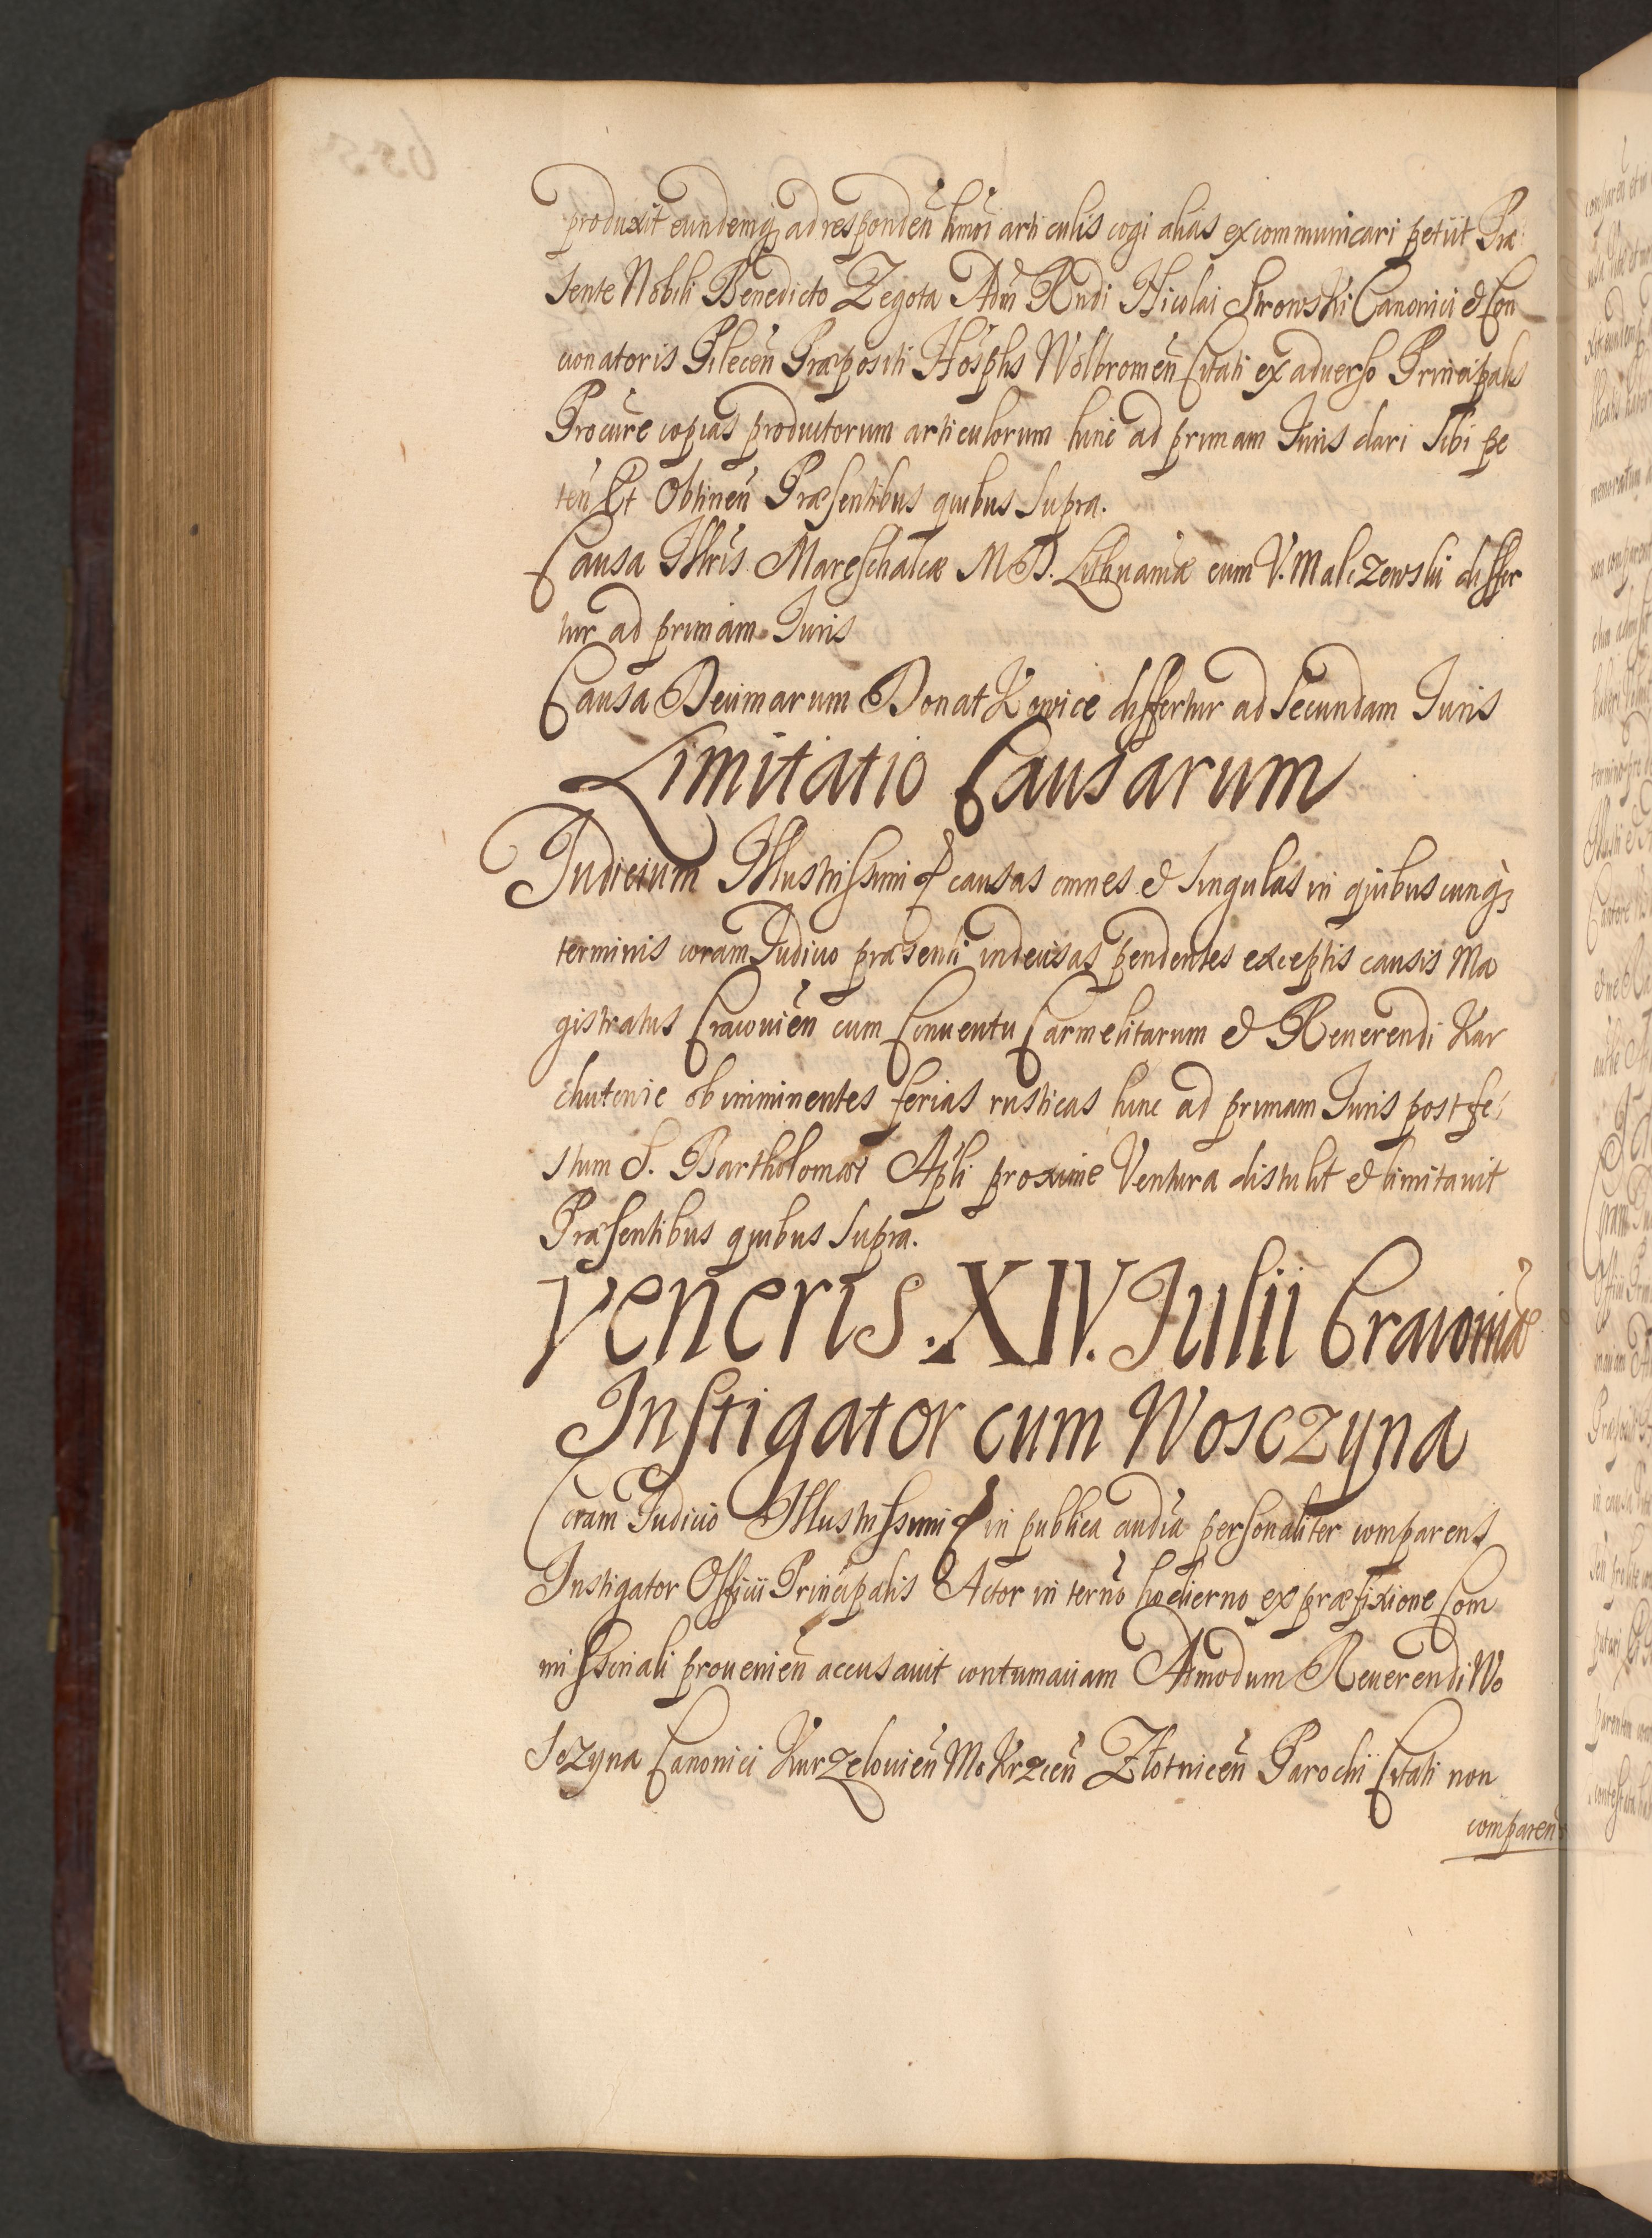 produxit eundemq₃ ad responden̄ hmōi articulis cogi alias excommunicari petiit Præ
sente Nobili Benedicto Zegota Adm̄ Rndi Nicolai Skrowski Canonici & Con
cionatoris Pilecen̄ Præpositi Hosplis Wolbromen̄ Citati ex aduerso Principalis
Procure copias productorum articulorum hinc ad primam Iuris dari sibi pe
ten̄ Et Obtinen̄ Præsentibus quibus supra.
Causa Illris Mareschalcæ M D. Lithuaniæ cum V. Malczewski differ
tur ad primam Iuris
Causa Decimarum Donatkowice differtur ad secundam Iuris
Limitatio Causarum
Iudicium Illustrissimi & causas omnes & singulas in quibuscunq₃
terminis coram Iudicio præsenti indecisas pendentes exceptis causis Ma
gistratus Cracouien̄ cum Conuentu Carmelitarum & Reuerendi Kar
chutowic ob imminentes ferias rusticas hinc ad primam Iuris post fe
stum S. Bartholomæi Apli proxime Ventura distulit & limitauit
Præsentibus quibus supra.
Veneris. XIV. Iulii Cracouiæ
Instigator cum Wosczyna
Coram Iudicio Illustrissimi & in publica audia personaliter comparens
Instigator Officii Principalis Actor in terno hodierno ex præfixione Com
missoriali prouenien̄ accusauit contumaciam Admodum Reuerendi Wo
sczyna Canonici Kurzelouien̄ Mokrzcen̄ Złotnicen̄ Parochi Citati non
comparen